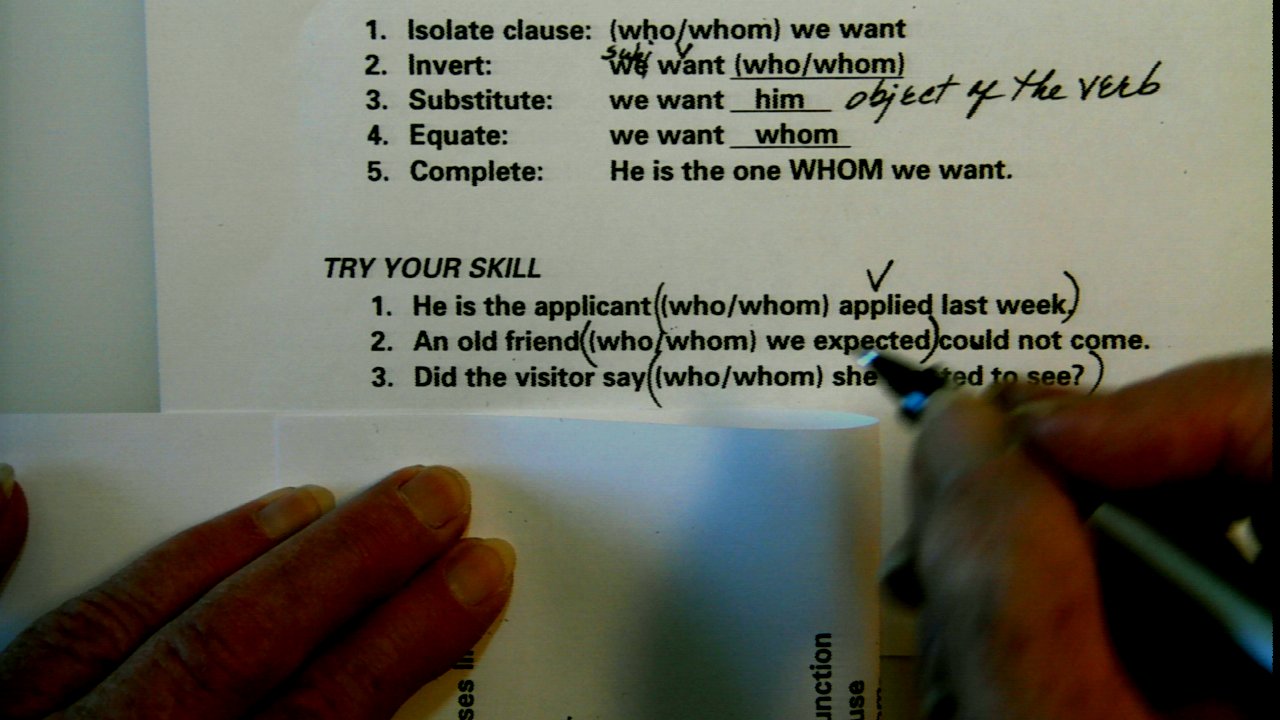 1. Isolate clause: (who/whom) we want
subj v
2. Invert: we want (who/whom)
3. Substitute: we want him object of the verb
4. Equate: we want whom
5. Complete: He is the one WHOM we want.
TRY YOUR SKILL
1. He is the applicant ((who/whom) applied last week.)
2. An old friend ((who/whom) we expected) could not come.
3. Did the visitor say ((who/whom) she to see?)
unction
use